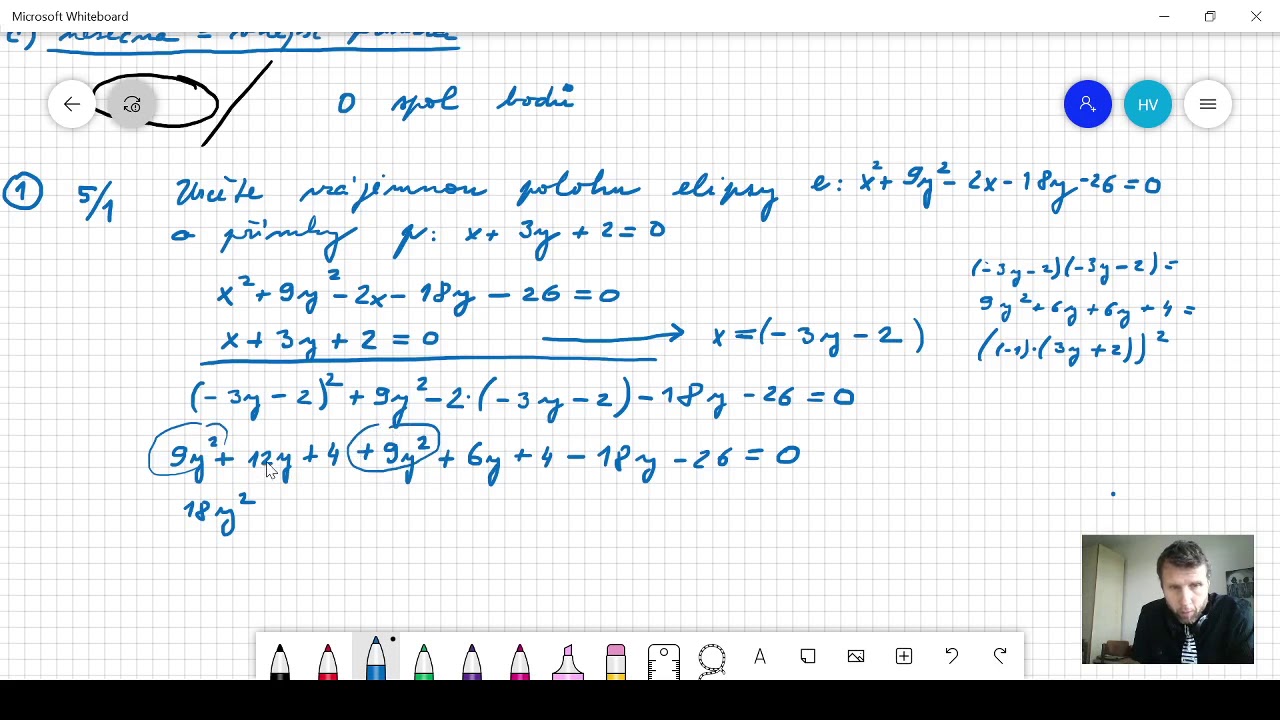 Microsoft Whiteboard
HV
0 spol bodů
1 5/1 Určete vzájemnou polohu elipsy e: x² + 9y² - 2x - 18y - 26 = 0
a přímky p: x + 3y + 2 = 0
x² + 9y² - 2x - 18y - 26 = 0
x + 3y + 2 = 0 → x = (-3y - 2)
(-3y - 2)(-3y - 2) =
9y² + 6y + 6y + 4 =
((-1)·(3y + 2))²
(-3y - 2)² + 9y² - 2·(-3y - 2) - 18y - 26 = 0
9y² + 12y + 4 + 9y² + 6y + 4 - 18y - 26 = 0
18y²